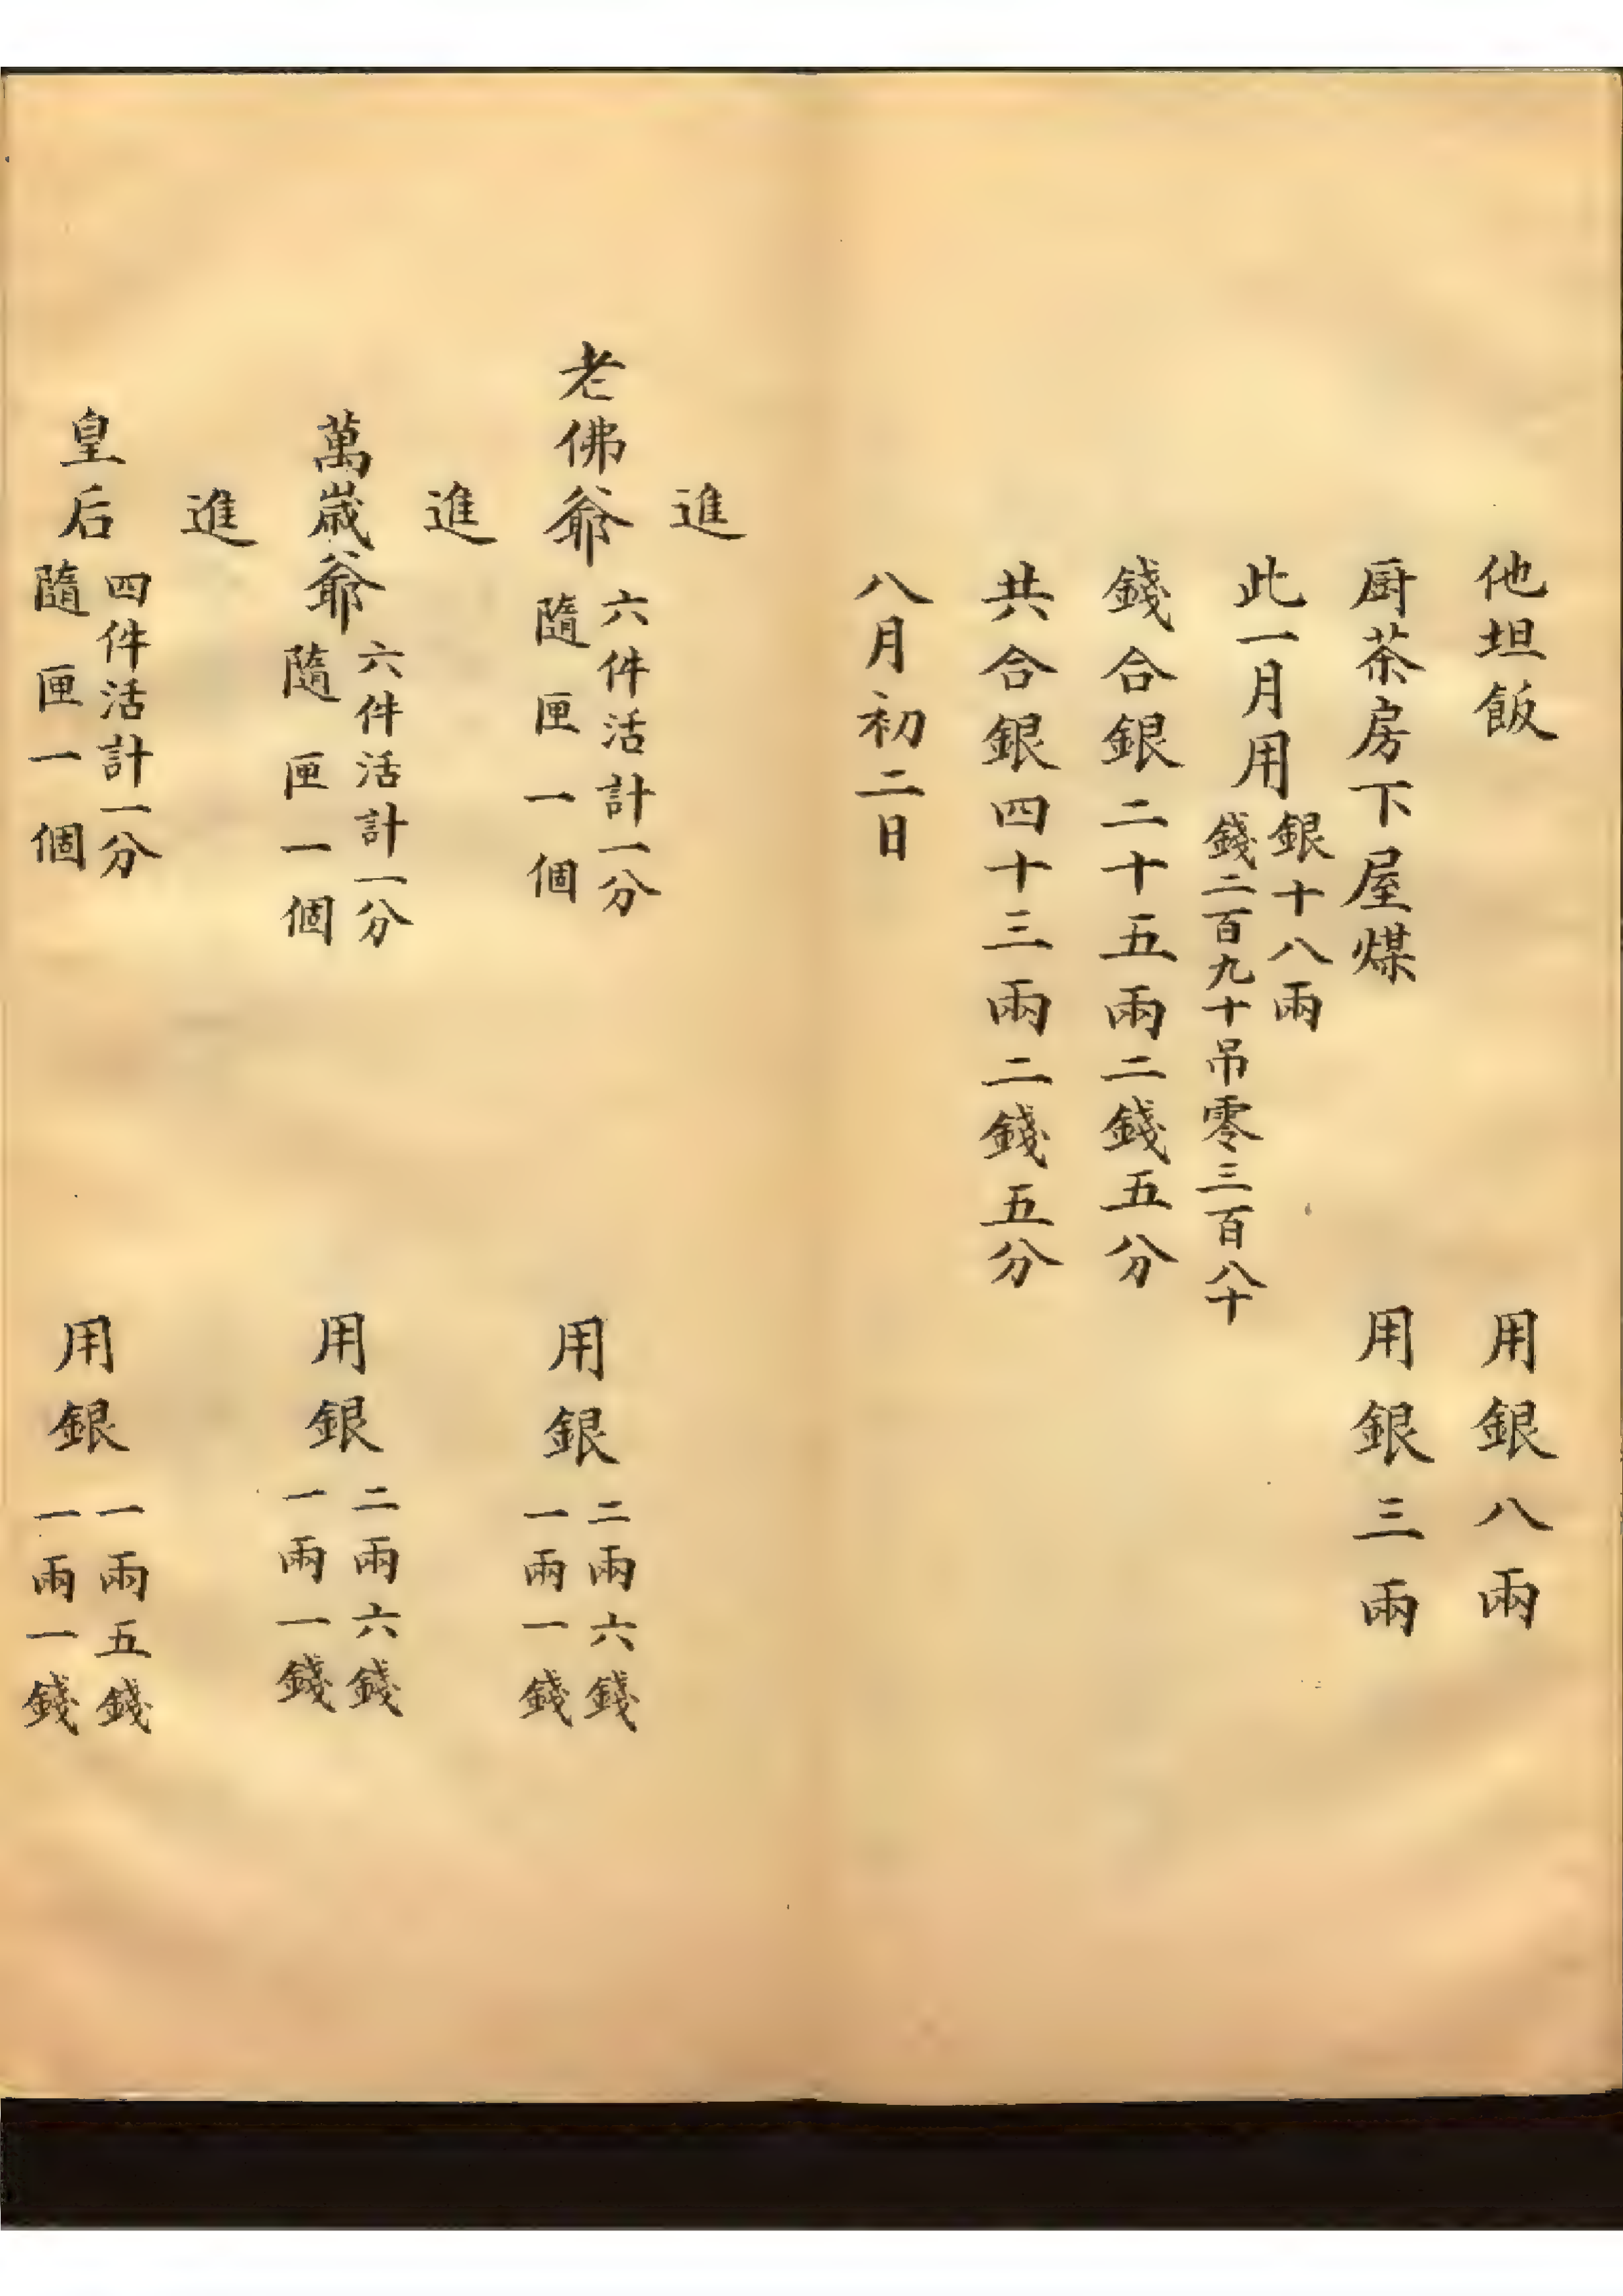 他坦飯 用銀八兩
厨茶房下屋煤 用銀三兩
此一月用
銀十八兩
錢二百九十吊零三百八十
錢合銀二十五兩二錢五分
共合銀四十三兩二錢五分
八月初二日
進
老佛爺
六件活計一分
隨匣一個
用銀
二兩六錢
一兩一錢
進
萬歲爺
六件活計一分
隨匣一個
用銀
二兩六錢
一兩一錢
進
皇后
四件活計一分
隨匣一個
用銀
一兩五錢
一兩一錢